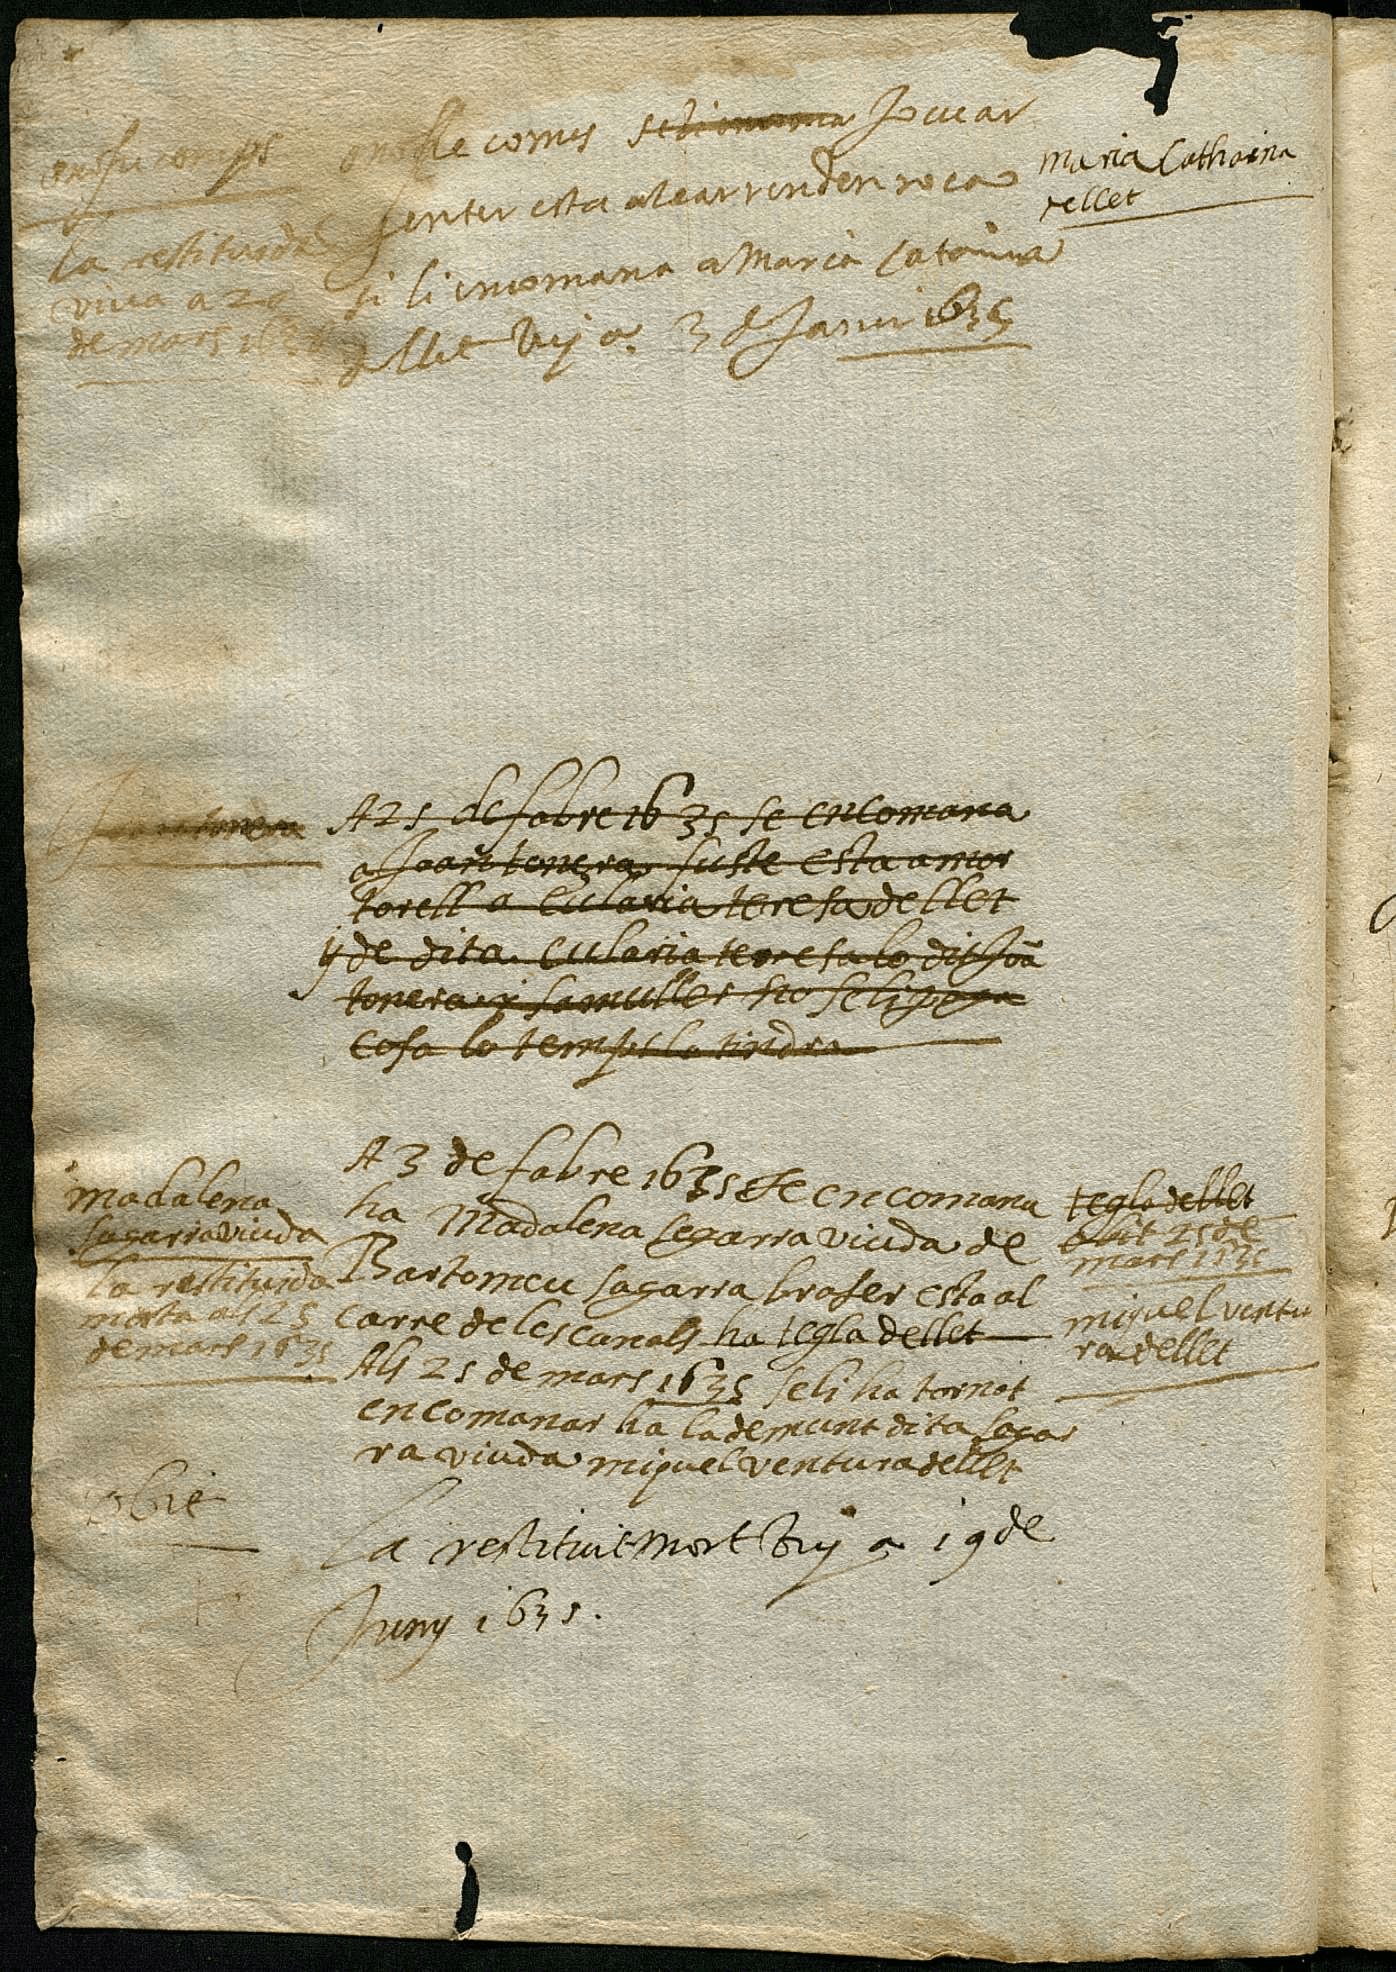 onofre comes
la restituida
viva a 20
de mars 1636
onofre comes se li comana Jo cuar
fenter esta al carrer den roca
si li encomana a maria catarina
dellet vuy a 3 de Janer 1635
maria Catharina
dellet
Joan tonera
A 25 de fabre 1635 se encomana
a Joan tonera fuste esta a mor
torell a Eularia teresa de llet
y de dita eularia terresa lo dit Joã
tonera y sa muller no se li paga
cosa lo temps la tindra
madalena
sagarra viuda
la restituida
morta als 25
de mars 1635
A 3 de fabre 1635 se encomana
ha Madalena segarra viuda de
Bartomeu sagarra braser esta al
carre de les canals ha tegla dellet
Als 25 de mars 1635 se li ha tornat
encomanar ha la demunt dita sega
ra viuda miquel ventura dellet
tegla dellet
obit 25 de
mars 1635
miquel ventu
ra dellet
obit
La restituit mort vuy a 19 de
Juny 1635.